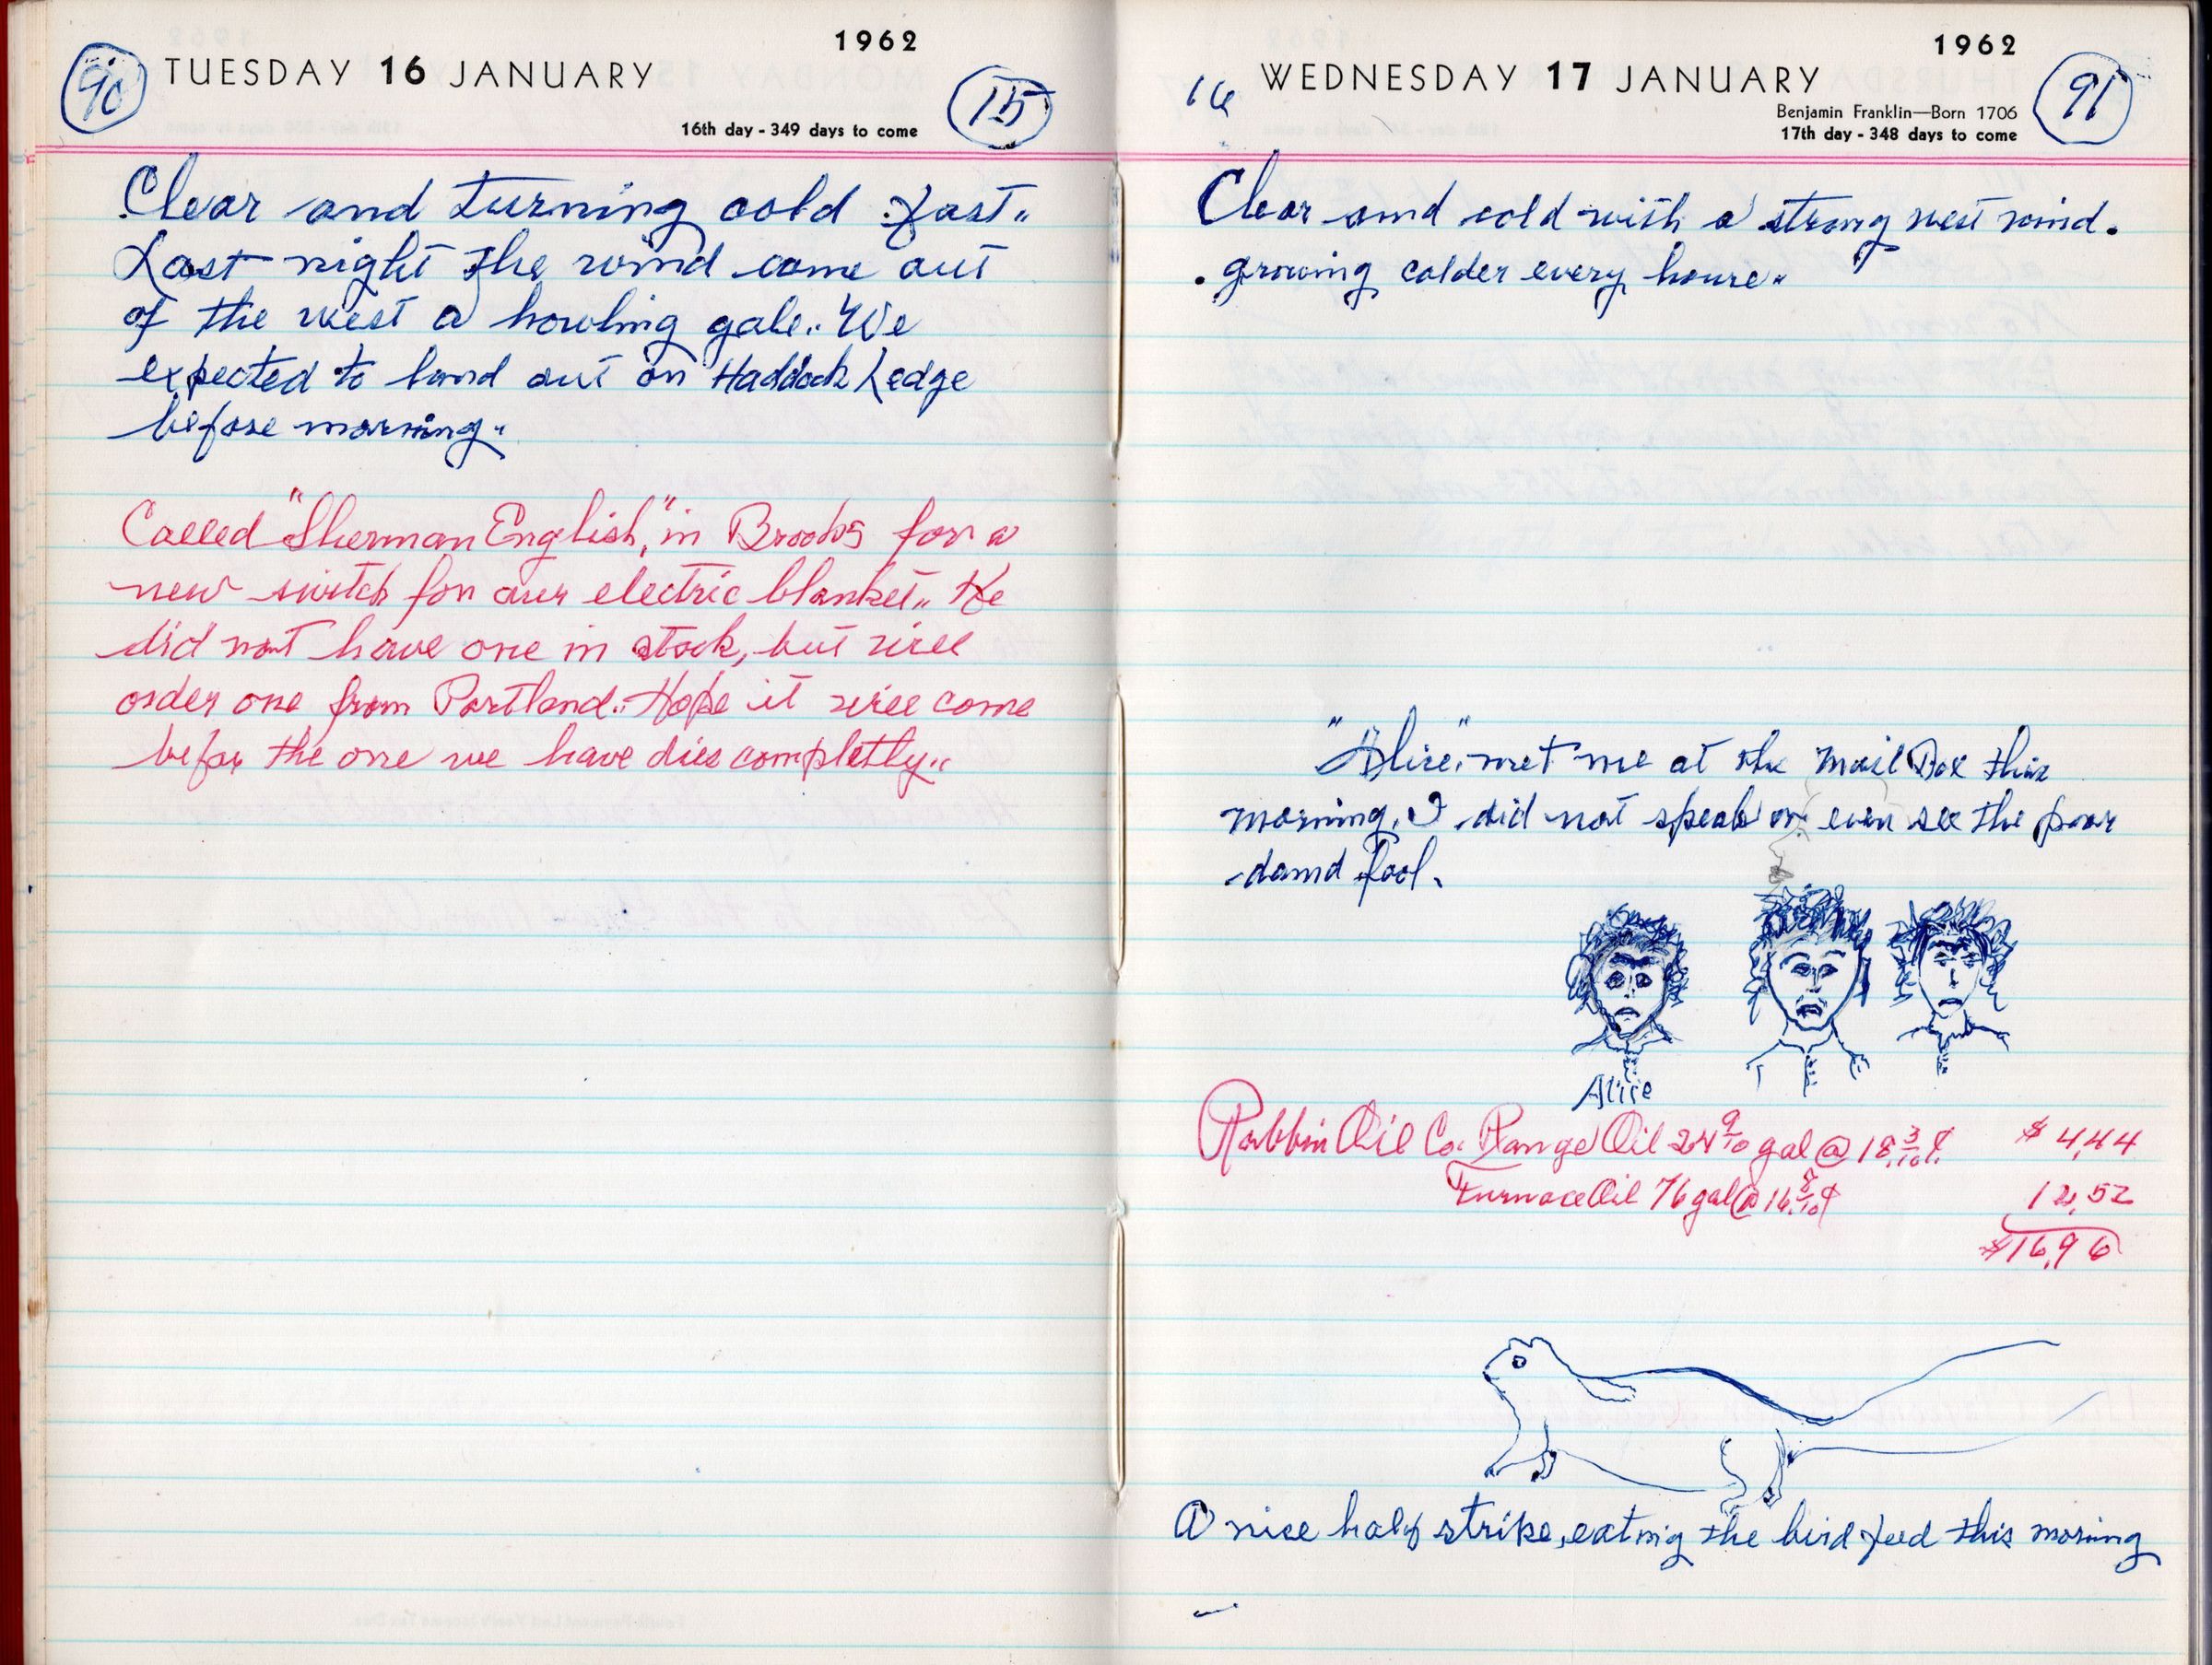 1962
90 TUESDAY 16 JANUARY 15
16th day - 349 days to come
Clear and turning cold fast..
Last night the wind come out
of the west a howling gale.. We
expected to land out on Haddock Ledge
before morning..
Called "Sherman English," in Brooks for a
new switch for our electric blanket.. He
did not have one in stock, but will
order one from Portland.. Hope it will come
befor the one we have dies completly..
1962
16 WEDNESDAY 17 JANUARY 91
Benjamin Franklin—Born 1706
17th day - 348 days to come
Clear and cold with a strong west wind.
. growing colder every houre..
"Alice," met me at the Mail Box this
morning. I did not speak or even see the poor
damd fool.
Alice
Robbin Oil Co. Range Oil 24 9/10 gal @ 18 3/10 ¢. $ 4,44
Furnace Oil 76 gal @ 16 5/10 ¢ 12,52
$16,96
A nice half strike, eating the bird feed this morning